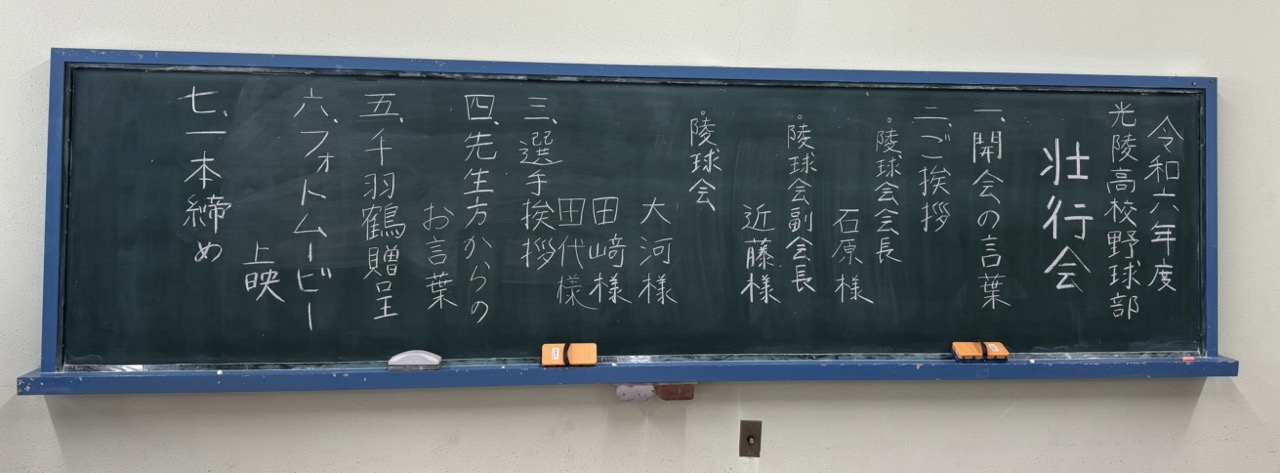 令和六年度
光陵高校野球部
壮行会
一、開会の言葉
二、ご挨拶
・陵球会会長
石原様
・陵球会副会長
近藤様
・陵球会
大河様
田﨑様
田代様
三、選手挨拶
四、先生方からの
お言葉
五、千羽鶴贈呈
六、フォトムービー
上映
七、一本締め